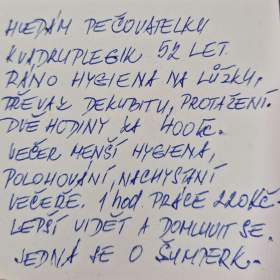 HLEDÁM PEČOVATELKU
KVADRUPLEGIK 52 LET.
RÁNO HYGIENA NA LŮŽKU,
PŘEVAZ DEKUBITU, PROTAŽENÍ.
DVĚ HODINY ZA 400Kč.
VEČER MENŠÍ HYGIENA,
POLOHOVÁNÍ, NACHYSTÁNÍ
VEČEŘE. 1 hod. PRÁCE 220Kč.
LEPŠÍ VIDĚT A DOMLUVIT SE.
JEDNÁ SE O ŠUMPERK.